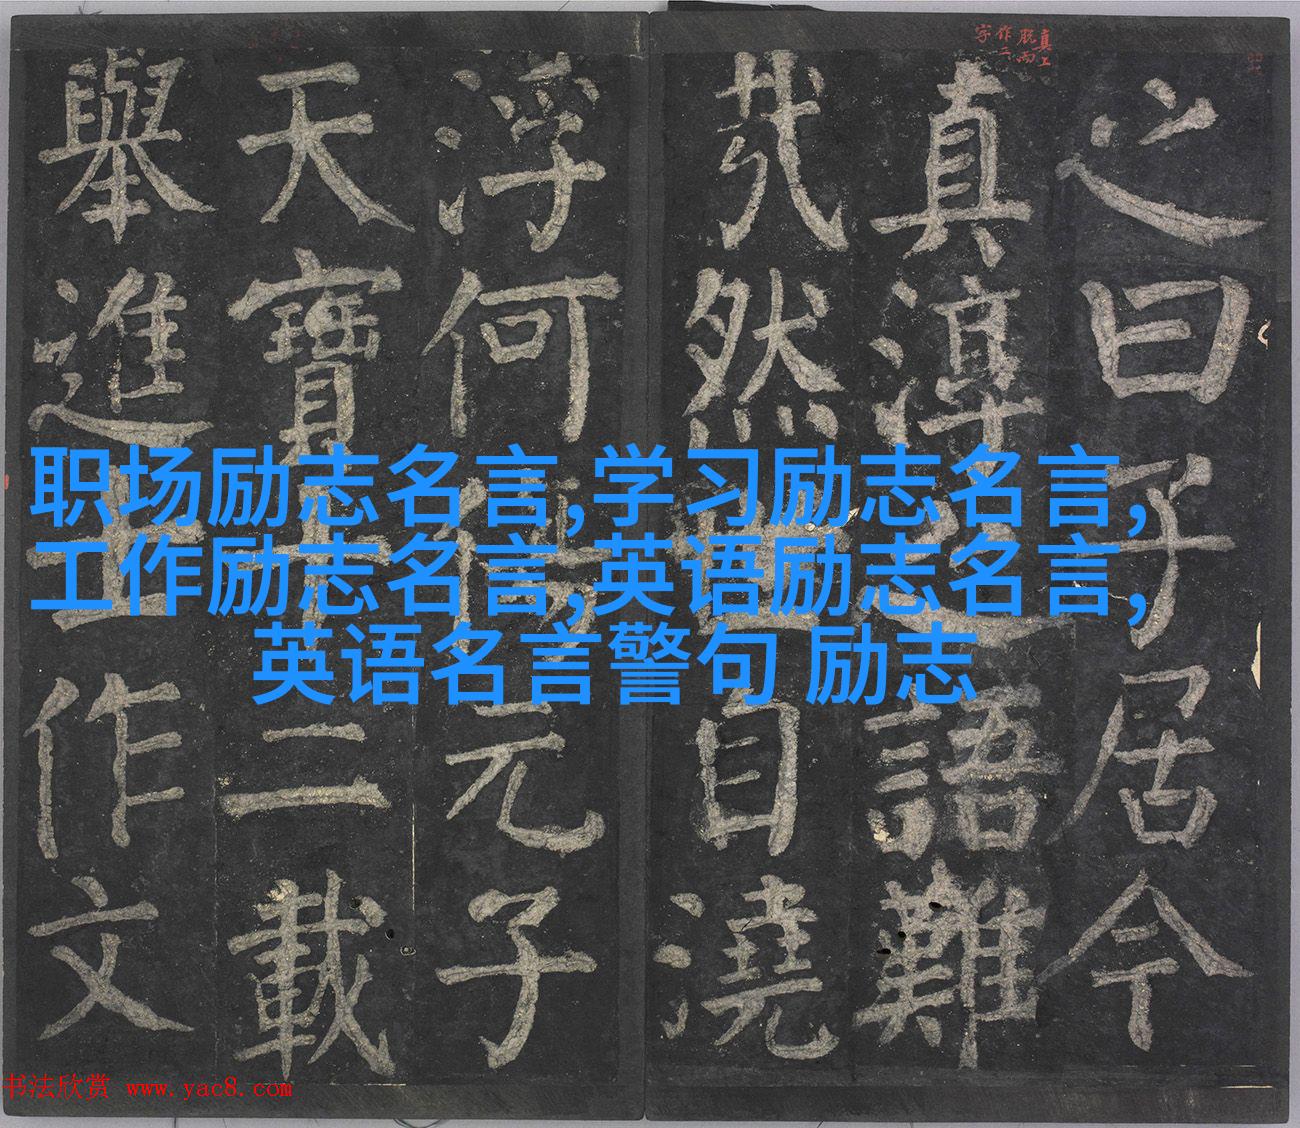 真上
脫而
作二
字
之曰子居今
真淳之語難
哉然世自澆
浮何傷元子
天寶十二載
舉進士作文
职场励志名言,学习励志名言,
工作励志名言,英语励志名言,
英语名言警句 励志
书法欣赏 www.yac8.com